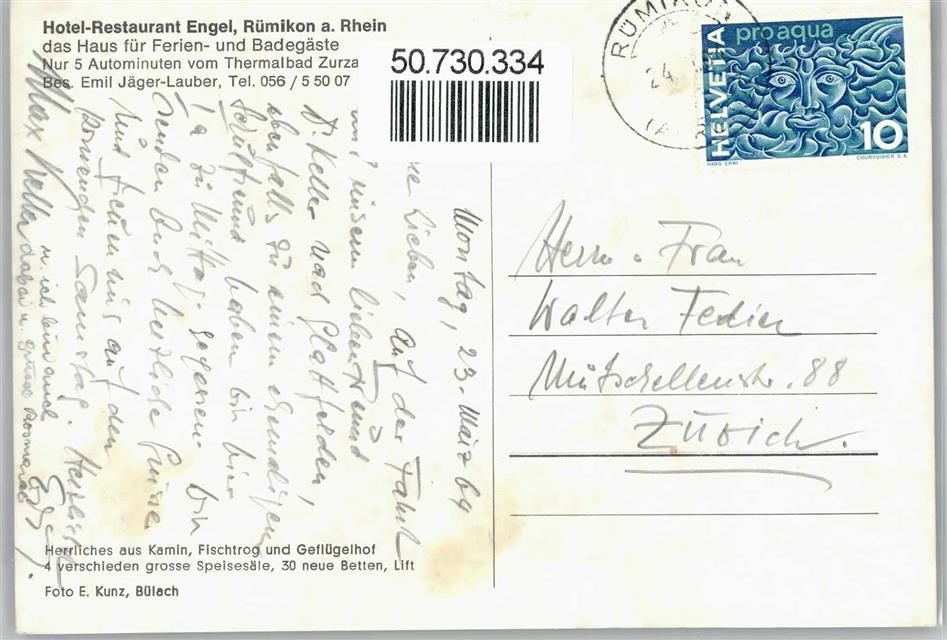 Hotel-Restaurant Engel, Rümikon a. Rhein
das Haus für Ferien- und Badegäste
Nur 5 Autominuten vom Thermalbad Zurza
Bes. Emil Jäger-Lauber, Tel. 056 / 5 50 07
50.730.334
RÜMIKON
24.
(A
HELVETIA
pro aqua
10
HANS ERNI
COURVOISIER S.A.
Montag, 23. März 64
Lieben, Auf der Fahrt
unserm lieben Freund
Dr. Keller nach Glattfelden,
ebenfalls zu einem ehemaligen
Schulfreund haben wir hier
zu Mittag gegessen. Wir
senden Euch herzliche Grüsse
und freuen uns auf den
kommenden Samstag. Herzlich
Max Keller
u. ich bin auch
dabei u. grüsse
Herrn u Frau
Walter Fedier
Mutschellenstr. 88
Zürich.
Herrliches aus Kamin, Fischtrog und Geflügelhof
4 verschieden grosse Speisesäle, 30 neue Betten, Lift
Foto E. Kunz, Bülach